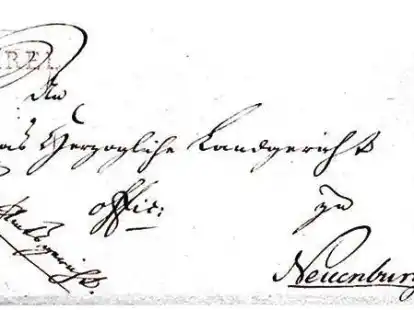 AREL
An
das Herzogliche Landgericht
offic:
zu
Amtsgericht.
Neuenburg